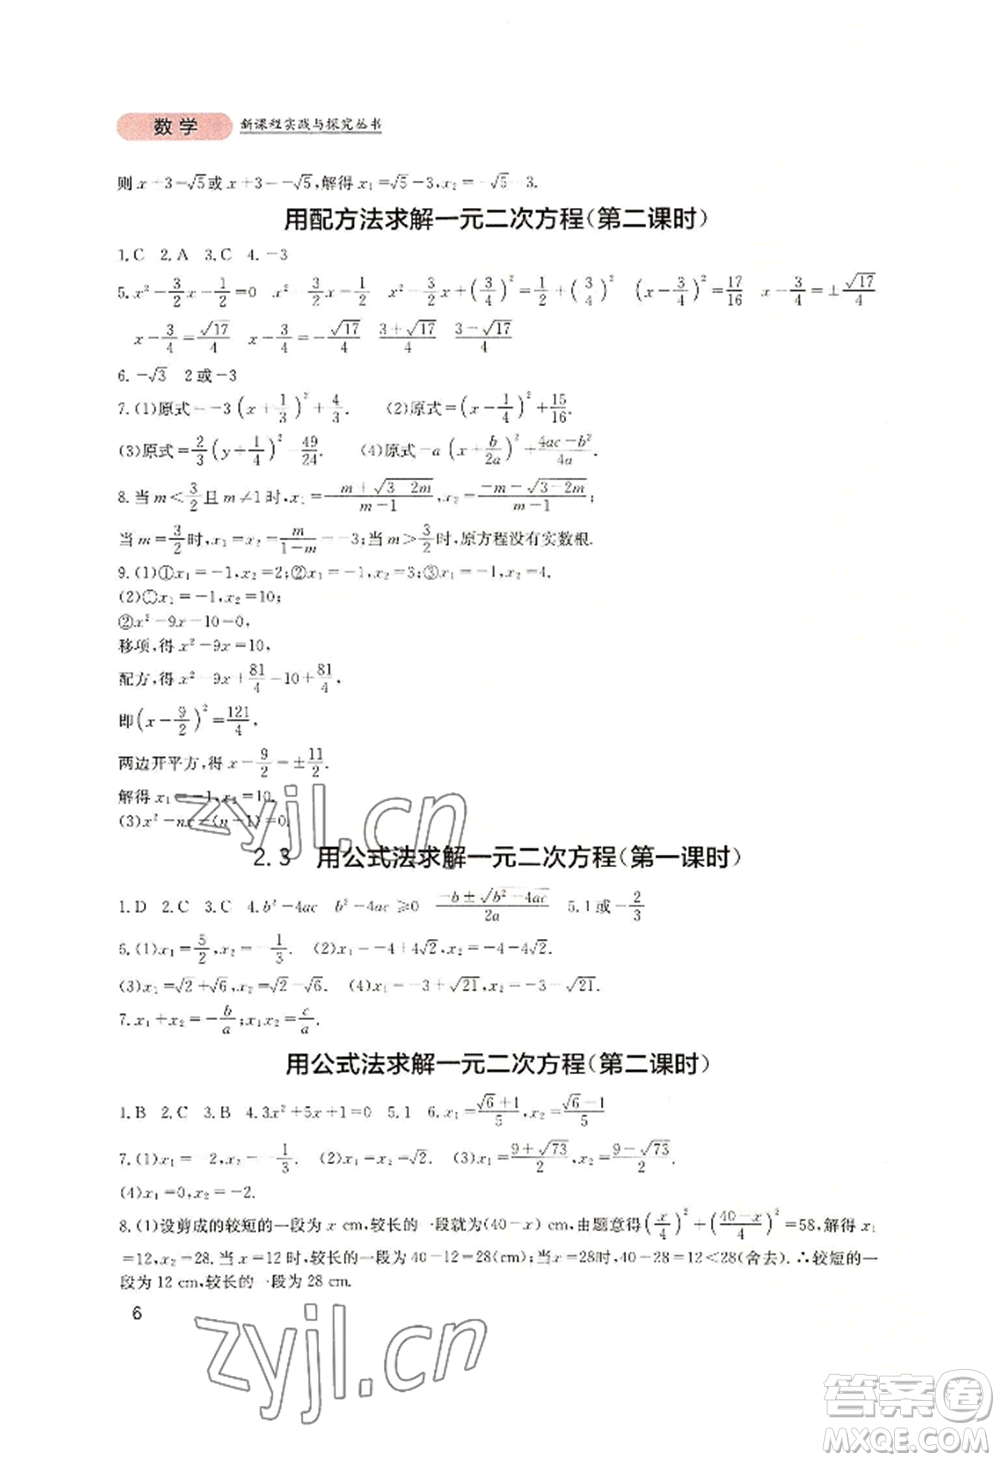 数学 新课程实践与探究丛书
则 x+3=√5或 x+3=-√5,解得 x₁=√5-3,x₂=-√5-3.
用配方法求解一元二次方程(第二课时)
1.C 2.A 3.C 4.-3
5.x²-3/2x-1/2=0 x²-3/2x=1/2 x²-3/2x+(3/4)²=1/2+(3/4)² (x-3/4)²=17/16 x-3/4=±√17/4
x-3/4=√17/4 x-3/4=-√17/4 (3+√17)/4 (3-√17)/4
6.-√3 2或-3
7.(1)原式=-3(x+1/3)²+4/3. (2)原式=(x-1/4)²+15/16.
(3)原式=2/3(y+1/4)²-49/24. (4)原式=a(x+b/2a)²+(4ac-b²)/4a.
8.当 m<3/2且 m≠1时,x₁=(-m+√(3-2m))/(m-1),x₂=(-m-√(3-2m))/(m-1);
当 m=3/2时,x₁=x₂=m/(1-m)=-3;当 m>3/2时,原方程没有实数根.
9.(1)①x₁=-1,x₂=2;②x₁=-1,x₂=3;③x₁=-1,x₂=4.
(2)①x₁=-1,x₂=10;
②x²-9x-10=0,
移项,得 x²-9x=10,
配方,得 x²-9x+81/4=10+81/4,
即(x-9/2)²=121/4,
两边开平方,得 x-9/2=±11/2.
解得 x₁=-1,x₂=10.
(3)x²-nx-(n+1)=0.
2.3 用公式法求解一元二次方程(第一课时)
1.D 2.C 3.C 4.b²-4ac b²-4ac≥0 (-b±√(b²-4ac))/2a 5.1或-2/3
6.(1)x₁=5/2,x₂=-1/3. (2)x₁=-4+4√2,x₂=-4-4√2.
(3)x₁=√2+√6,x₂=√2-√6. (4)x₁=-3+√21,x₂=-3-√21.
7.x₁+x₂=-b/a;x₁x₂=c/a.
用公式法求解一元二次方程(第二课时)
1.B 2.C 3.B 4.3x²+5x+1=0 5.1 6.x₁=(√6+1)/5,x₂=(√6-1)/5
7.(1)x₁=-2,x₂=-1/3. (2)x₁=x₂=√3. (3)x₁=(9+√73)/2,x₂=(9-√73)/2.
(4)x₁=0,x₂=-2.
8.(1)设剪成的较短的一段为 x cm,较长的一段就为(40-x)cm,由题意得(x/4)²+((40-x)/4)²=58,解得 x₁
=12,x₂=28.当 x=12时,较长的一段为 40-12=28(cm);当 x=28时,40-28=12<28(舍去).∴较短的一
段为 12 cm,较长的一段为 28 cm.
6
zyjl.cn
zyjl.cn
答案圈
MXQE.COM